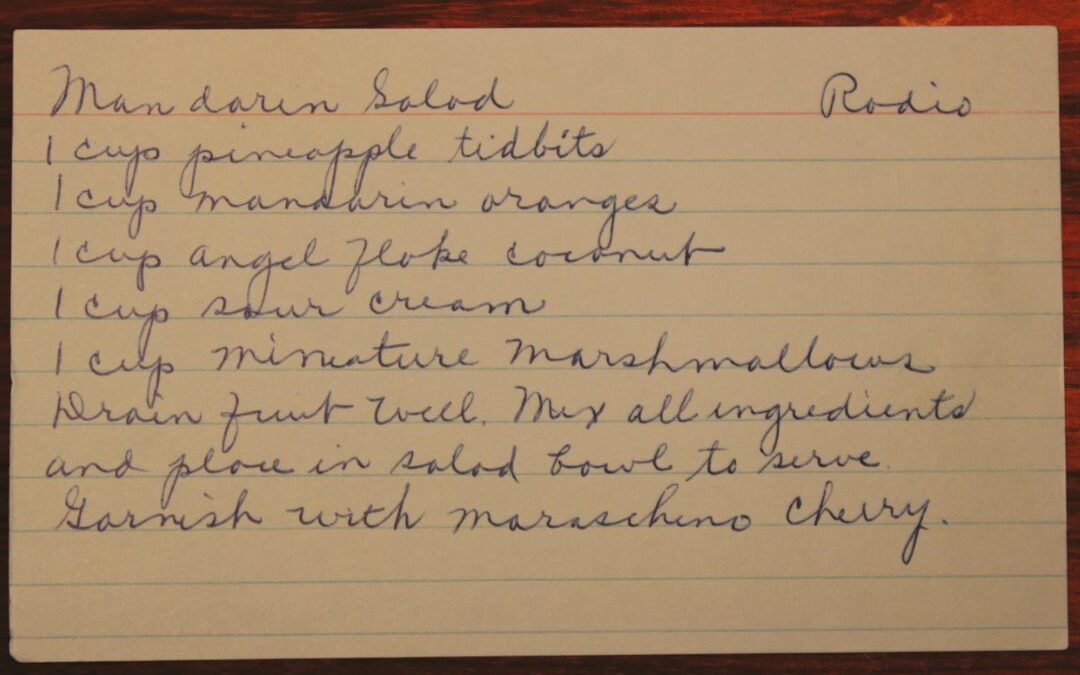 Mandarin Salad Radio
1 cup pineapple tidbits
1 cup mandarin oranges
1 cup angel flake coconut
1 cup sour cream
1 cup miniature marshmallows
Drain fruit well. Mix all ingredients
and place in salad bowl to serve.
Garnish with maraschino cherry.